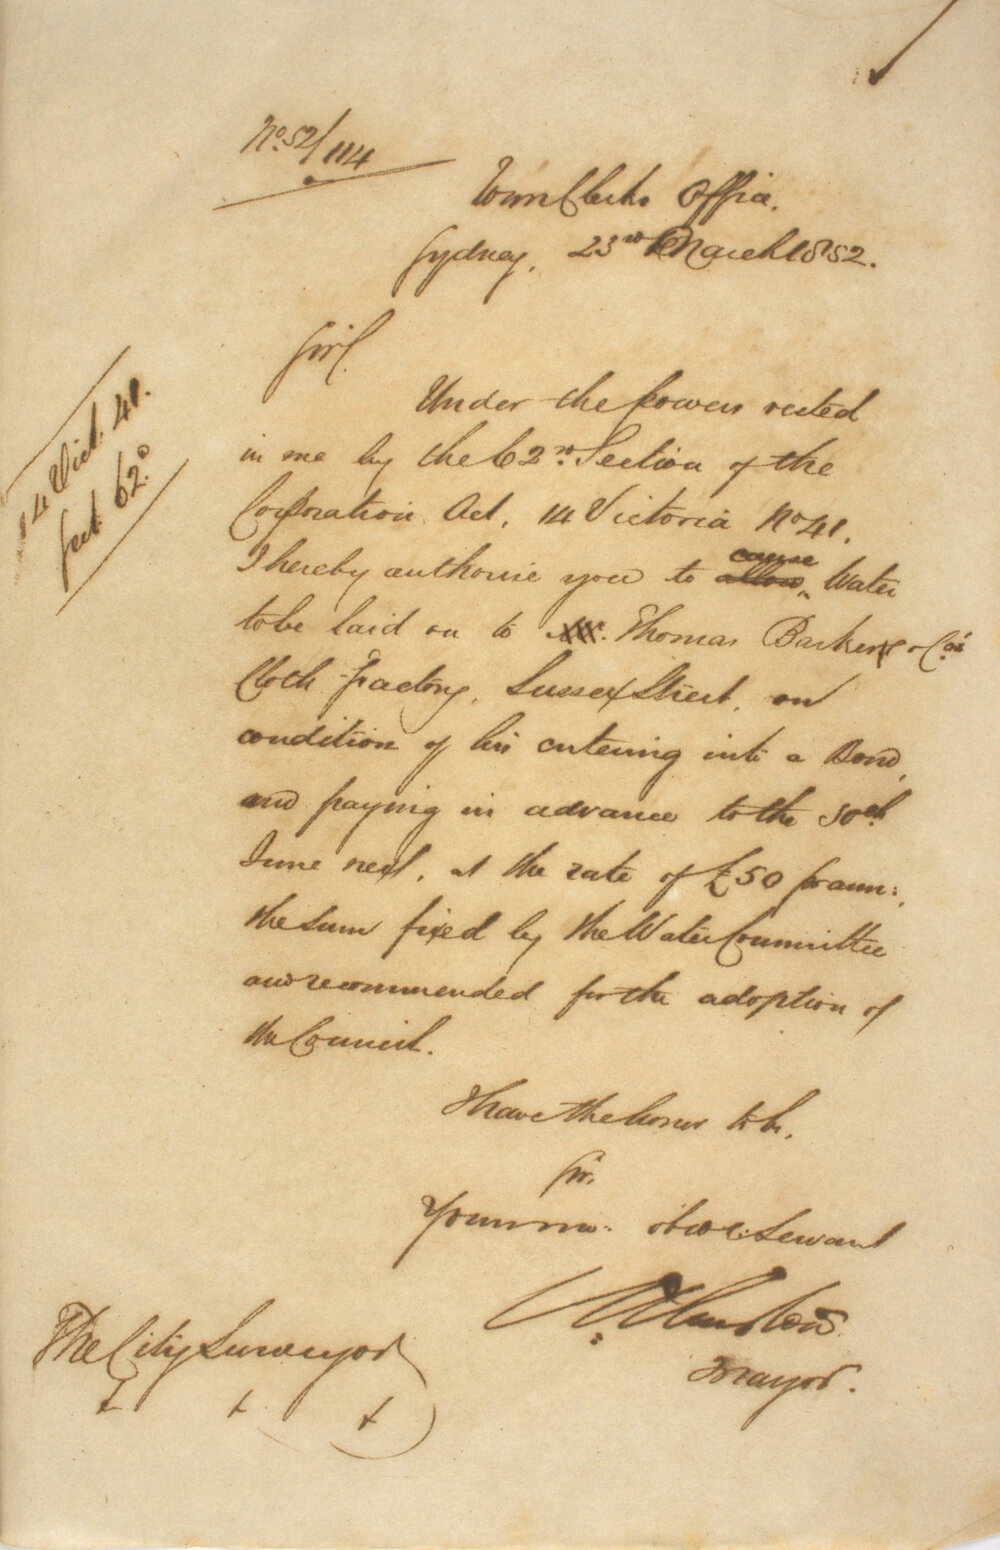 No. 52/114
Town Clerks Office.
Sydney, 23rd March 1852.
Sir,
14 Vict. 41.
Sect. 62.
Under the powers vested
in me by the 62nd. Section of the
Corporation Act, 14 Victoria No 41.
I hereby authorise you to allow cause Water
to be laid on to Mr. Thomas Barker & Co's
Cloth Factory, Sussex Street, on
condition of his entering into a Bond,
and paying in advance to the 30th
June next, at the rate of £50 pr ann:,
the sum fixed by the Water Committee
and recommended for the adoption of
the Council.
I have the honor to be,
Sir,
Your mo: obdt. Servant
Mayor.
The City Surveyor